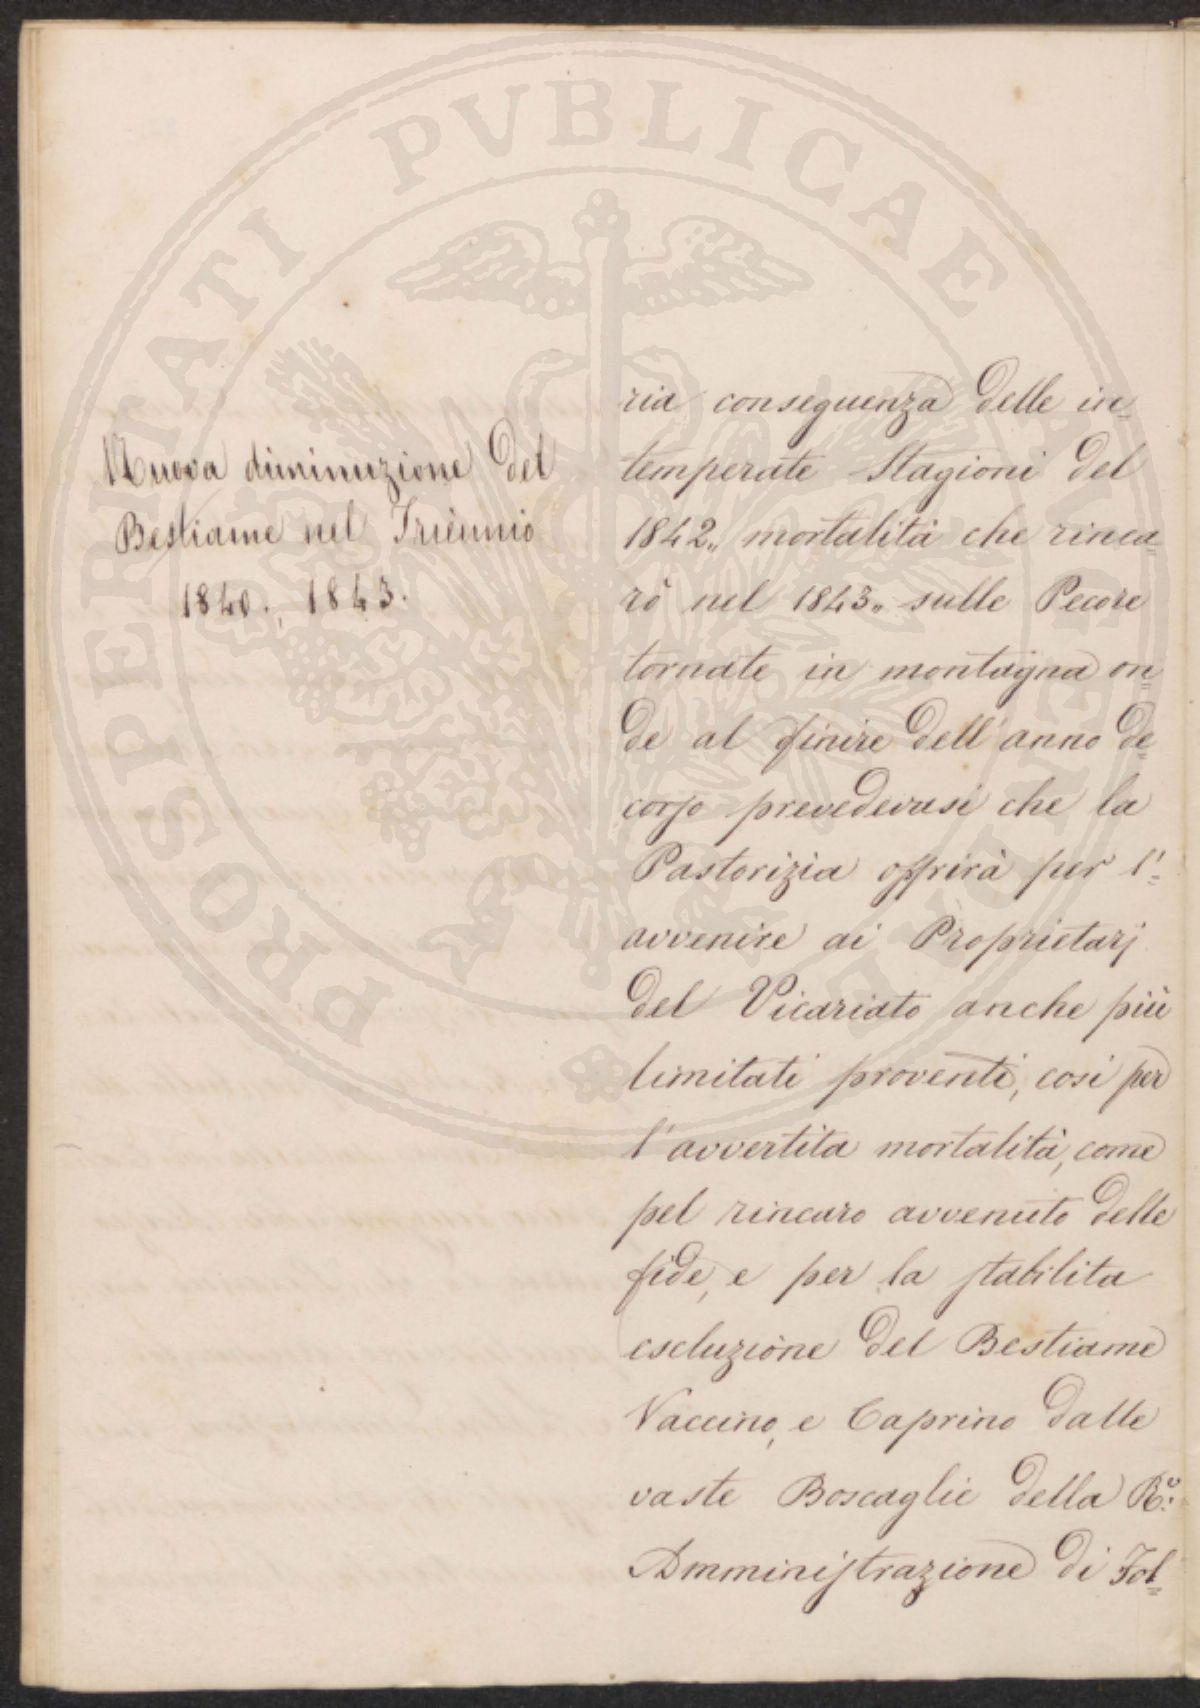 Nuova diminuzione del
Bestiame nel Triennio
1840., 1843.
ria conseguenza delle in=
temperate Stagioni del
1842,, mortalità che rinca=
rò nel 1843,, sulle Pecore
tornate in montagna on=
de al finire dell'anno de=
corso prevedevasi che la
Pastorizia offrirà per l'=
avvenire ai Proprietarj
del Vicariato anche più
limitati proventi, così per
l'avvertita mortalità, come
pel rincaro avvenuto delle
fide, e per la stabilita
escluzione del Bestiame
Vaccino, e Caprino dalle
vaste Boscaglie della R.
Amministrazione di Fol=
PROSPERITATI PVBLICAE AVGENDAE